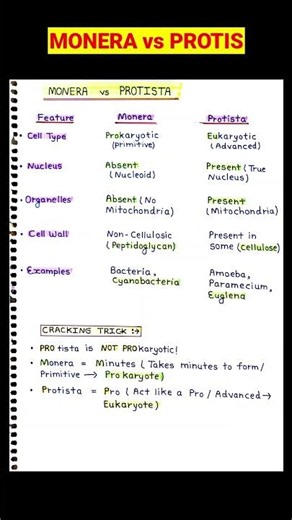 MONERA vs PROTIS
MONERA vs PROTISTA
Feature Monera Protista
• Cell Type Prokaryotic Eukaryotic
(primitive) (Advanced)
• Nucleus Absent Present (True
(Nucleoid) Nucleus)
• Organelles Absent (No Present
Mitochondria) (Mitochondria)
• Cell Wall Non-Cellulosic Present in
(Peptidoglycan) some (Cellulose)
• Examples Bacteria, Amoeba,
Cyanobacteria Paramecium,
Euglena
CRACKING TRICK :→
• PROtista is NOT PROkaryotic!
• Monera = Minutes (Takes minutes to form/
Primitive → Prokaryote)
• Protista = Pro (Act like a Pro / Advanced →
Eukaryote)